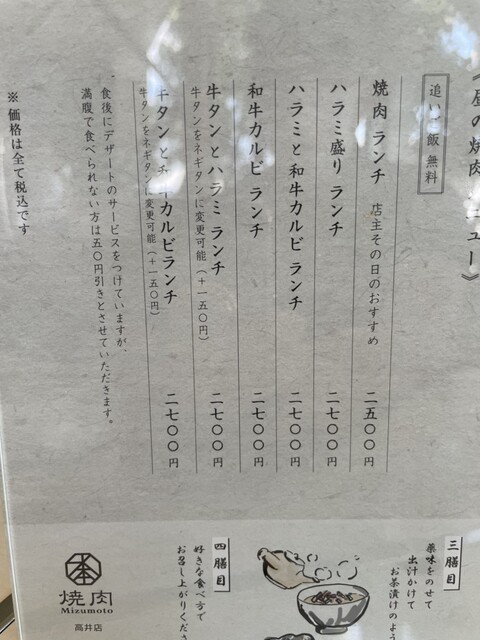 昼の焼肉メニュー》
追いご飯 無料
焼肉 ランチ 店主その日のおすすめ 二五〇〇円
ハラミ盛り ランチ 二七〇〇円
ハラミと和牛カルビ ランチ 二七〇〇円
和牛カルビ ランチ 二七〇〇円
牛タンとハラミ ランチ 二七〇〇円
牛タンをネギタンに変更可能(+一五〇円)
牛タンと和牛カルビ ランチ 二七〇〇円
牛タンをネギタンに変更可能(+一五〇円)
・食後にデザートのサービスをつけていますが、
満腹で食べられない方は五〇円引きとさせていただきます。
※ 価格は全て税込です
三膳目
薬味をのせて
出汁かけて
お茶漬けのよう
四膳目
好きな食べ方で
お召し上がりくださ
焼肉
Mizumoto
高井店